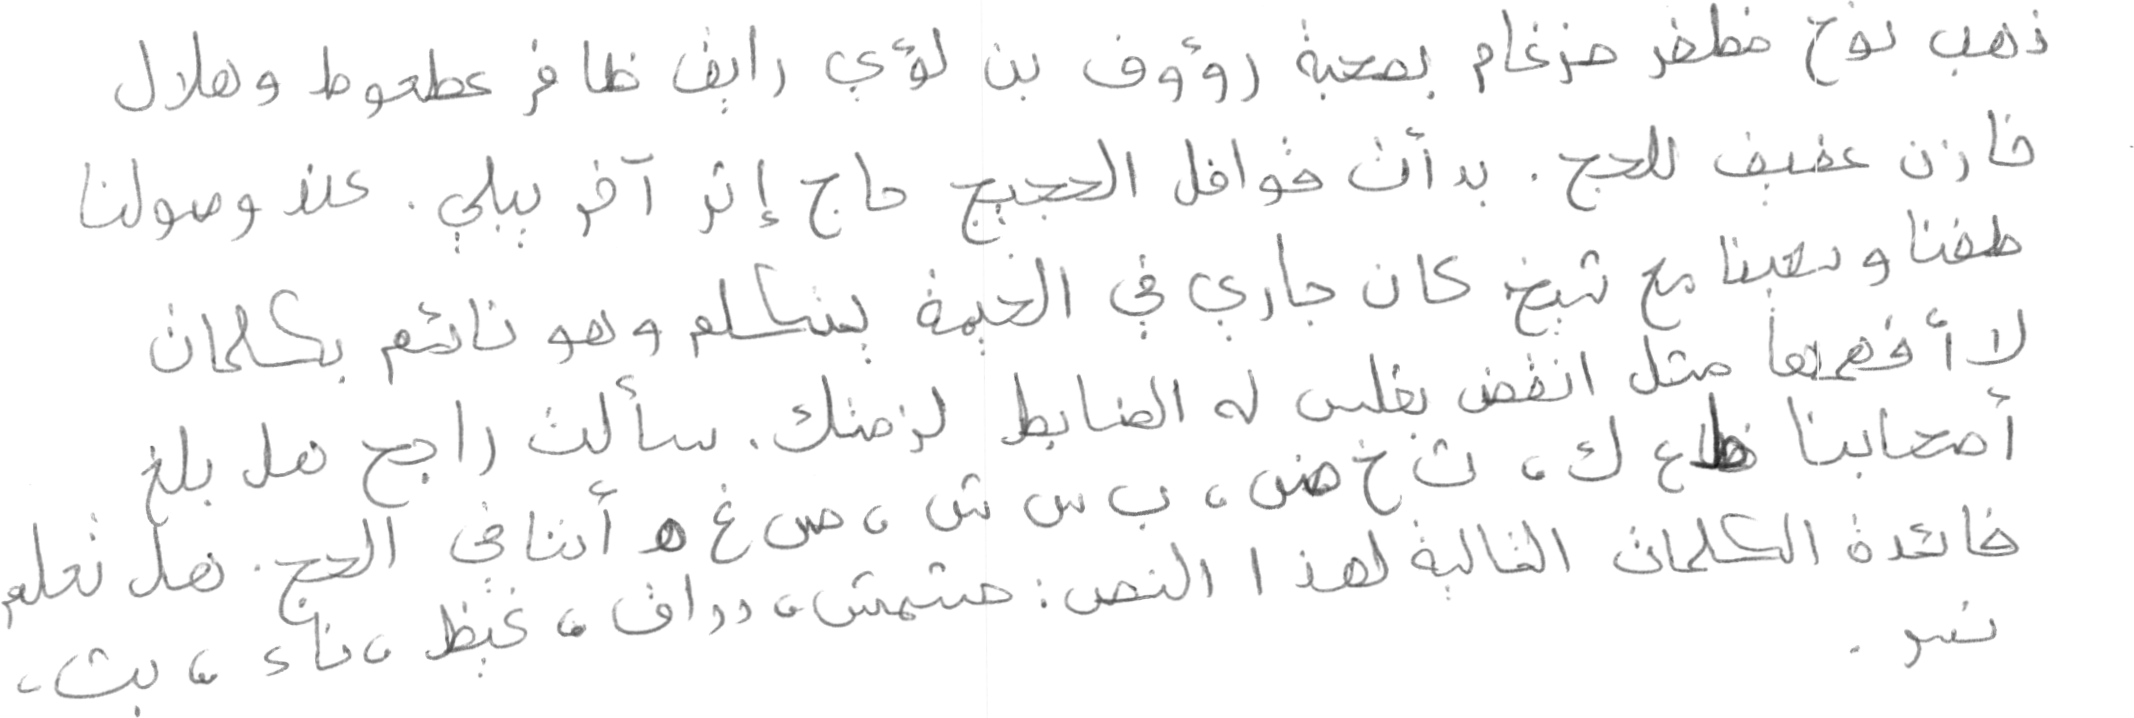 ذهب نوح مظفر ضرغام بصحبة رؤوف بن لؤي رايق ظافر عطعوط وهلال
خازن عفيف للحج . بدأت قوافل الحجيج حاج إثر آخر يلبي . عند وصولنا
طفنا وسعينا مع شيخ كان جاري في الخيمة يتكلم وهو نائم بكلمات
لا أفهمها مثل انقض بغلس له الضابط لزمتك . سألت راجح هل بلغ
أصحابنا ظ ع ك ، ث خ ض ، ب س ش ، ص غ ه أننا في الحج . هل تعلم
فائدة الكلمات التالية لهذا النص : مشمش ، دواق ، غيظ ، ناء ، بت ،
نسر .